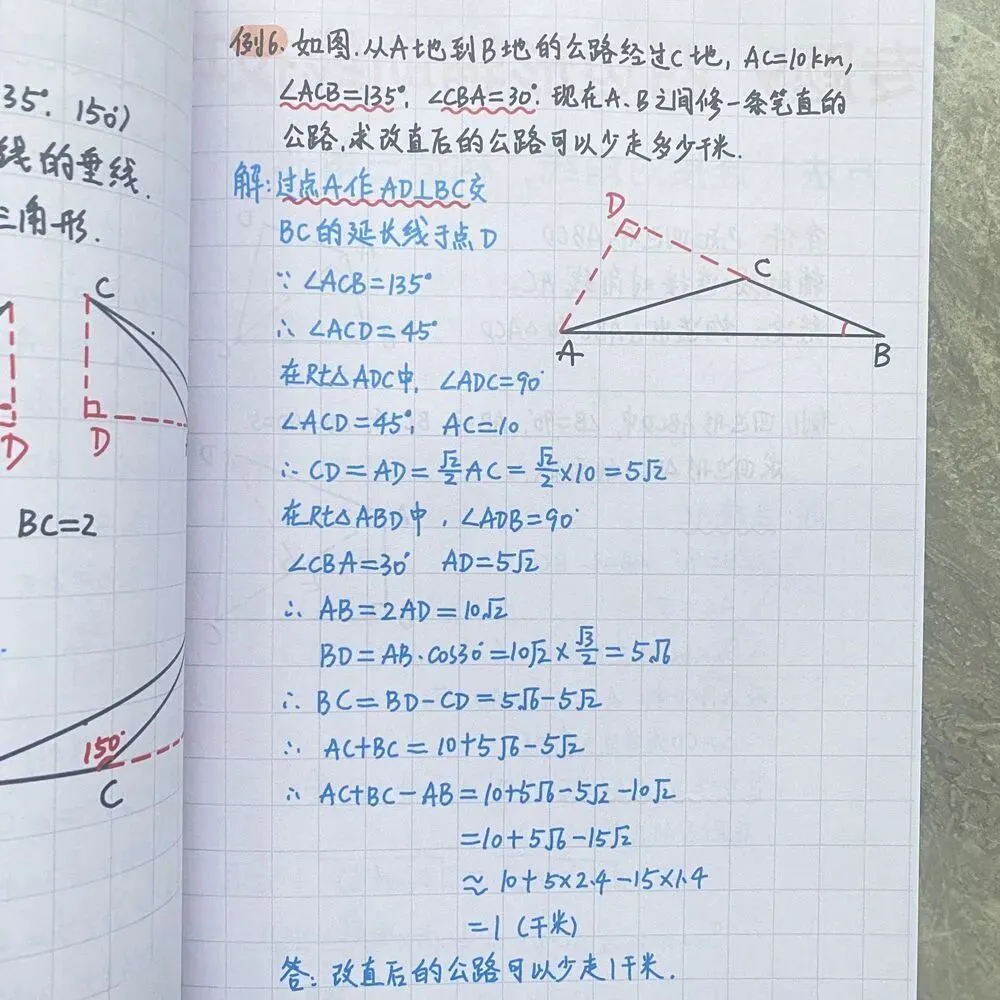 35°. 150°)
线的垂线.
三角形.
C
D
D
BC=2
150°
C
例6. 如图.从A地到B地的公路经过C地, AC=10km,
∠ACB=135°, ∠CBA=30°. 现在A、B之间修一条笔直的
公路,求改直后的公路可以少走多少千米.
解:过点A作AD⊥BC交
BC的延长线于点D
∵ ∠ACB=135°
∴ ∠ACD=45°
在Rt△ADC中, ∠ADC=90°
∠ACD=45°, AC=10
∴ CD=AD=√2/2 AC=√2/2×10=5√2
在Rt△ABD中, ∠ADB=90°
∠CBA=30° AD=5√2
∴ AB=2AD=10√2
BD=AB·cos30°=10√2×√3/2=5√6
∴ BC=BD-CD=5√6-5√2
∴ AC+BC=10+5√6-5√2
∴ AC+BC-AB=10+5√6-5√2-10√2
=10+5√6-15√2
≈10+5×2.4-15×1.4
=1 (千米)
答: 改直后的公路可以少走1千米.
D
C
A
B